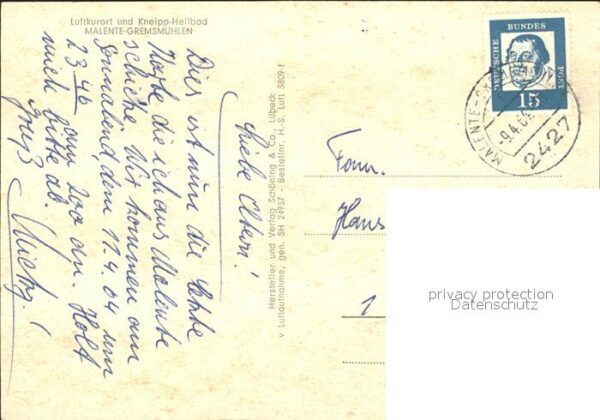 Luftkurort und Kneipp-Heilbad
MALENTE-GREMSMÜHLEN
Liebe Eltern!
Dies ist nun die letzte
Karte die ich aus Malente
schicke. Wir kommen am
Sonnabend, dem 11.4.64 um
23.46 am Zoo an. Holt
mich bitte ab.
Gruß
Hersteller und Verlag Schöning & Co., Lübeck
v Luftaufnahme, gen. SH 24957 - Bestellnr. H.-S. Luft 3809-1
DEUTSCHE
BUNDES
POST
15
MALENTE-GR
-9.4.64
2427
Fam.
Hans
1
privacy protection
Datenschutz